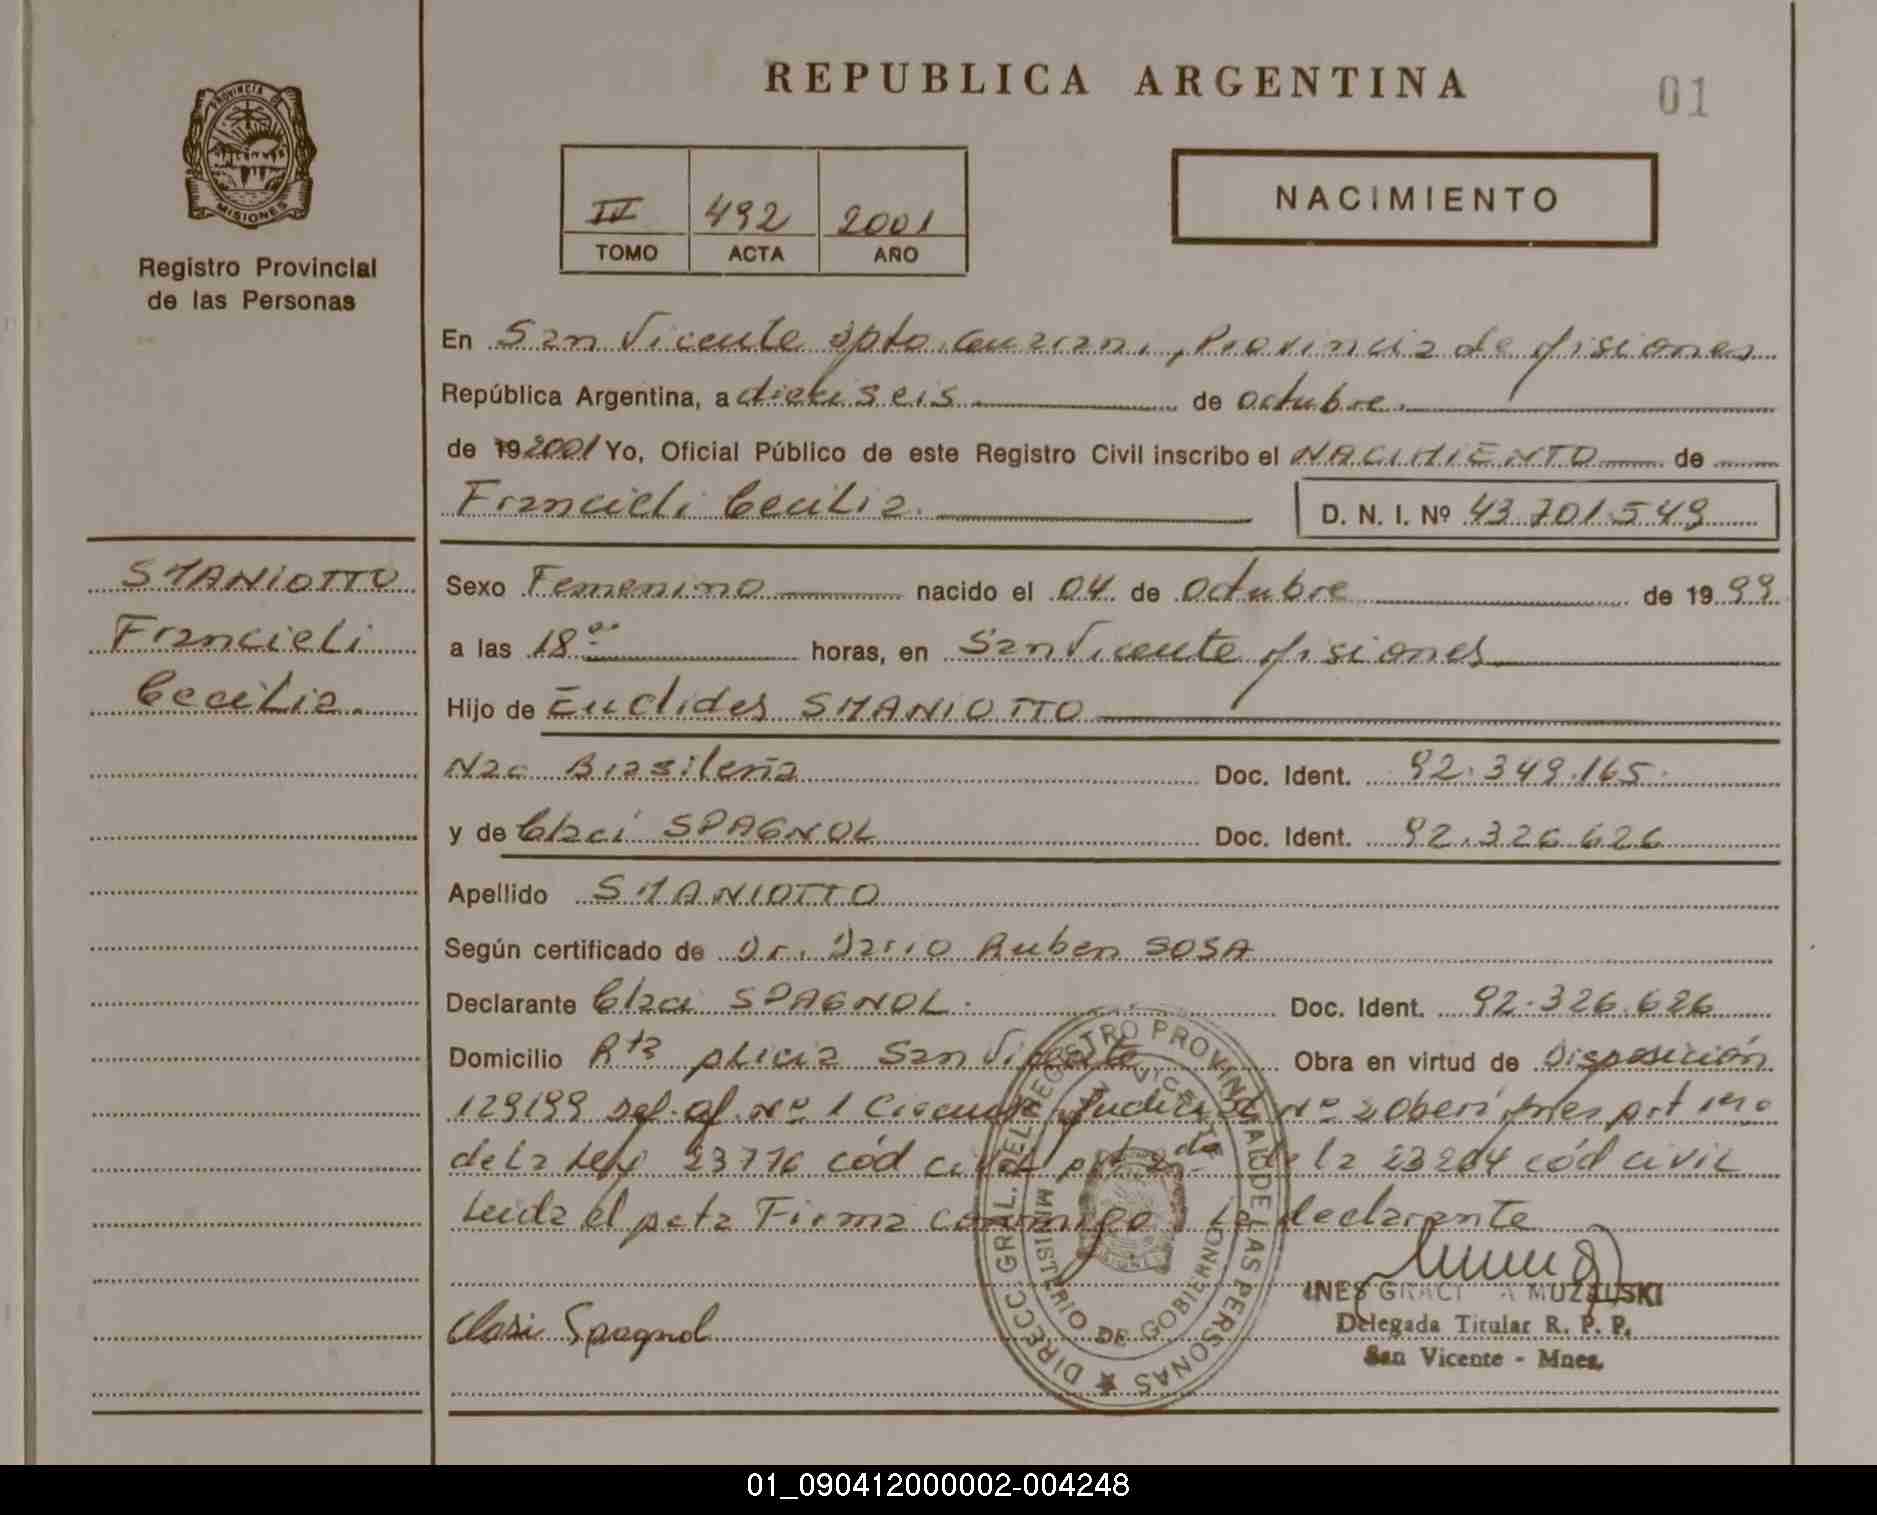 REPUBLICA ARGENTINA
01
PROVINCIA DE
MISIONES
Registro Provincial
de las Personas
IV 492 2001
TOMO ACTA AÑO
NACIMIENTO
En San Vicente Dpto. Guarani, Provincia de Misiones
República Argentina, a dieciseis de octubre
de 19 2001 Yo, Oficial Público de este Registro Civil inscribo el NACIMIENTO de
Francieli Cecilia. D. N. I. Nº 43.701.549
SMANIOTTO
Francieli
Cecilia.
Sexo Femenino nacido el 04 de octubre de 1999
a las 18 00 horas, en San Vicente Misiones
Hijo de Euclides SMANIOTTO
Nac Brasileña Doc. Ident. 92.349.165.
y de Claci SPAGNOL Doc. Ident. 92.326.626
Apellido SMANIOTTO
Según certificado de Dr. Dario Ruben SOSA
Declarante Claci SPAGNOL. Doc. Ident. 92.326.626
Domicilio Rta San Vicente Obra en virtud de Disposición
129199 Nº 1 Nº 2 Oberá Mnes art 1ero
de la Ley 23776 cód civil art 2da de la 23264 cód civil
Leida el acta Firma conmigo la declarante
DIRECC. GRAL. DEL REGISTRO PROVINCIAL DE LAS PERSONAS
MINISTERIO DE GOBIERNO
INES GRACI A MUZALSKI
Delegada Titular R. P. P.
San Vicente - Mnes.
Clasi Spagnol
01_090412000002-004248